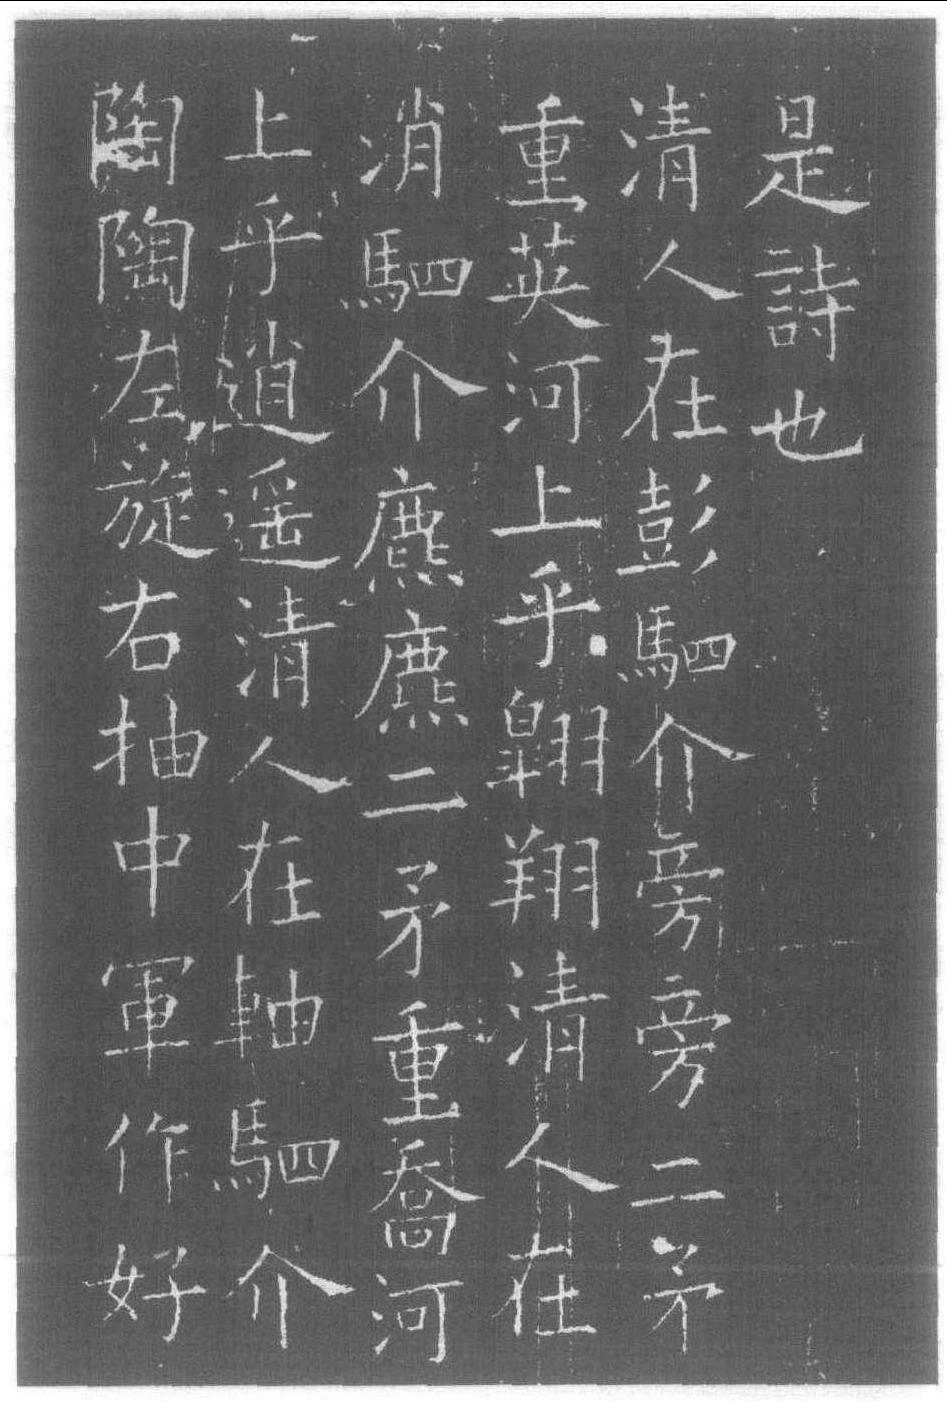 是詩也
清人在彭駟介旁旁二矛
重英河上乎翱翔清人在
消駟介麃麃二矛重喬河
上乎逍遥清人在軸駟介
陶陶左旋右抽中軍作好